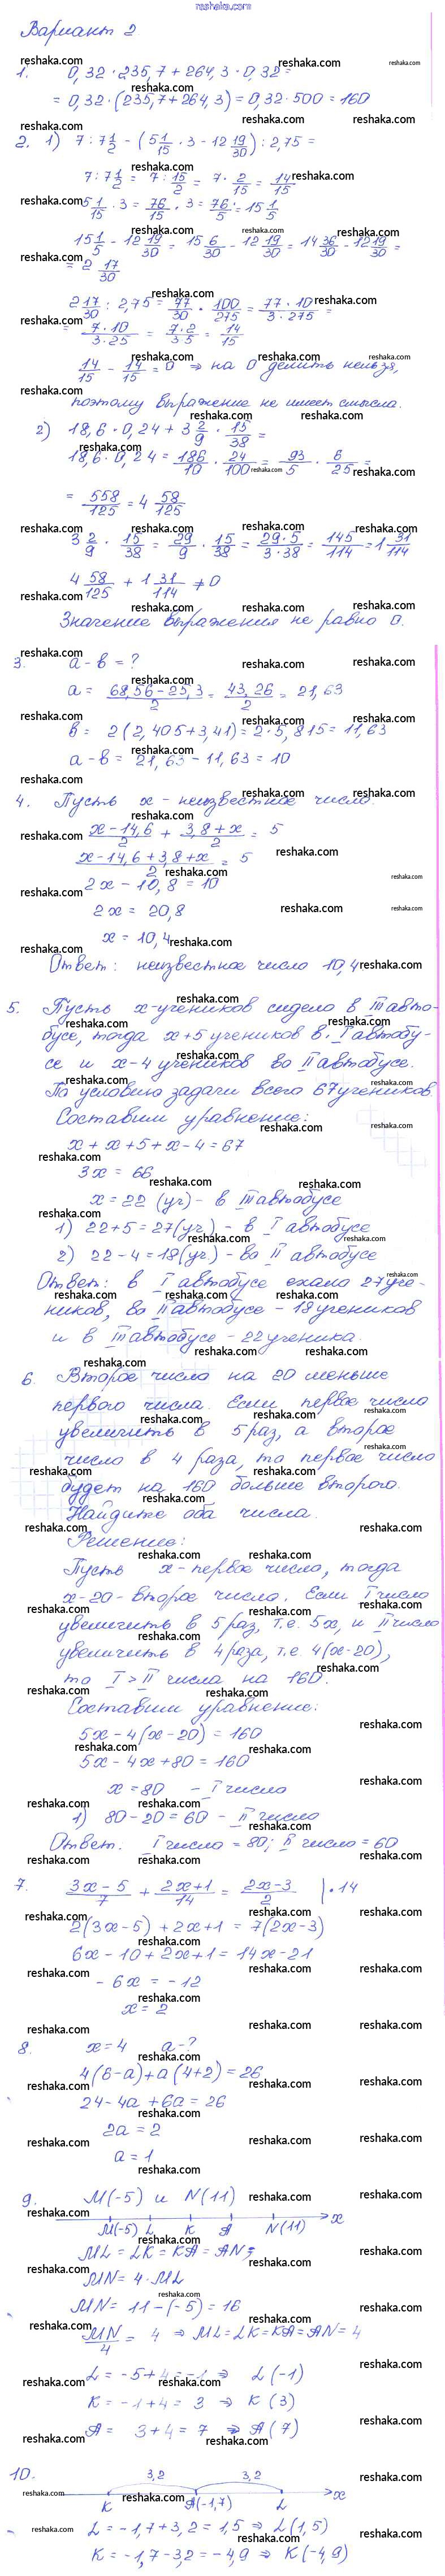 reshaka.com
Вариант 2
1. 0,32 · 235,7 + 264,3 · 0,32 =
= 0,32 · (235,7 + 264,3) = 0,32 · 500 = 160
2. 1) 7 : 7 1/2 - (5 1/15 · 3 - 12 19/30) : 2,75 =
7 : 7 1/2 = 7 : 15/2 = 7 · 2/15 = 14/15
5 1/15 · 3 = 76/15 · 3 = 76/5 = 15 1/5
15 1/5 - 12 19/30 = 15 6/30 - 12 19/30 = 14 36/30 - 12 19/30 =
= 2 17/30
2 17/30 : 2,75 = 77/30 · 100/275 = 77 · 10 / 3 · 275 =
= 7 · 10 / 3 · 25 = 7 · 2 / 3 · 5 = 14/15
14/15 - 14/15 = 0 ⇒ на 0 делить нельзя,
поэтому выражение не имеет смысла.
2) 18,6 · 0,24 + 3 2/9 · 15/38 =
18,6 · 0,24 = 186/10 · 24/100 = 93/5 · 6/25 =
= 558/125 = 4 58/125
3 2/9 · 15/38 = 29/9 · 15/38 = 29 · 5 / 3 · 38 = 145/114 = 1 31/114
4 58/125 + 1 31/114 ≠ 0
Значение выражения не равно 0.
3. a - b = ?
a = 68,56 - 25,3 / 2 = 43,26 / 2 = 21,63
b = 2(2,405 + 3,41) = 2 · 5,815 = 11,63
a - b = 21,63 - 11,63 = 10
4. Пусть x - неизвестное число.
x - 14,6 / 2 + 3,8 + x / 2 = 5
x - 14,6 + 3,8 + x / 2 = 5
2x - 10,8 = 10
2x = 20,8
x = 10,4
Ответ: неизвестное число 10,4
5. Пусть x - учеников сидело в III авто-
бусе, тогда x + 5 учеников в I автобу-
се и x - 4 учеников во II автобусе.
По условию задачи всего 67 учеников
Составим уравнение:
x + x + 5 + x - 4 = 67
3x = 66
x = 22 (уч) - в III автобусе
1) 22 + 5 = 27 (уч.) - в I автобусе
2) 22 - 4 = 18 (уч.) - во II автобусе
Ответ: в I автобусе ехало 27 уче-
ников, во II автобусе - 18 учеников
и в III автобусе - 22 ученика.
6. Второе число на 20 меньше
первого числа. Если первое число
увеличить в 5 раз, а второе
число в 4 раза, то первое число
будет на 160 больше второго.
Найдите оба числа.
Решение:
Пусть x - первое число, тогда
x - 20 - второе число. Если I число
увеличить в 5 раз, т.е. 5x, и II число
увеличить в 4 раза, т.е 4(x - 20),
то I > II числа на 160.
Составим уравнение:
5x - 4(x - 20) = 160
5x - 4x + 80 = 160
x = 80 - I число
1) 80 - 20 = 60 - II число
Ответ. I число = 80; II число = 60
7. 3x - 5 / 7 + 2x + 1 / 14 = 2x - 3 / 2 | · 14
2(3x - 5) + 2x + 1 = 7(2x - 3)
6x - 10 + 2x + 1 = 14x - 21
- 6x = - 12
x = 2
8. x = 4 a - ?
4(6 - a) + a(4 + 2) = 26
24 - 4a + 6a = 26
2a = 2
a = 1
9. M(-5) и N(11)
M(-5) L K A N(11) x
ML = LK = KA = AN;
MN = 4 · ML
MN = 11 - (-5) = 16
MN / 4 = 4 ⇒ ML = LK = KA = AN = 4
L = -5 + 4 = -1 ⇒ L(-1)
K = -1 + 4 = 3 ⇒ K(3)
A = 3 + 4 = 7 ⇒ A(7)
10. 3,2 3,2
K A(-1,7) L x
L = -1,7 + 3,2 = 1,5 ⇒ L(1,5)
K = -1,7 - 3,2 = -4,9 ⇒ K(-4,9)